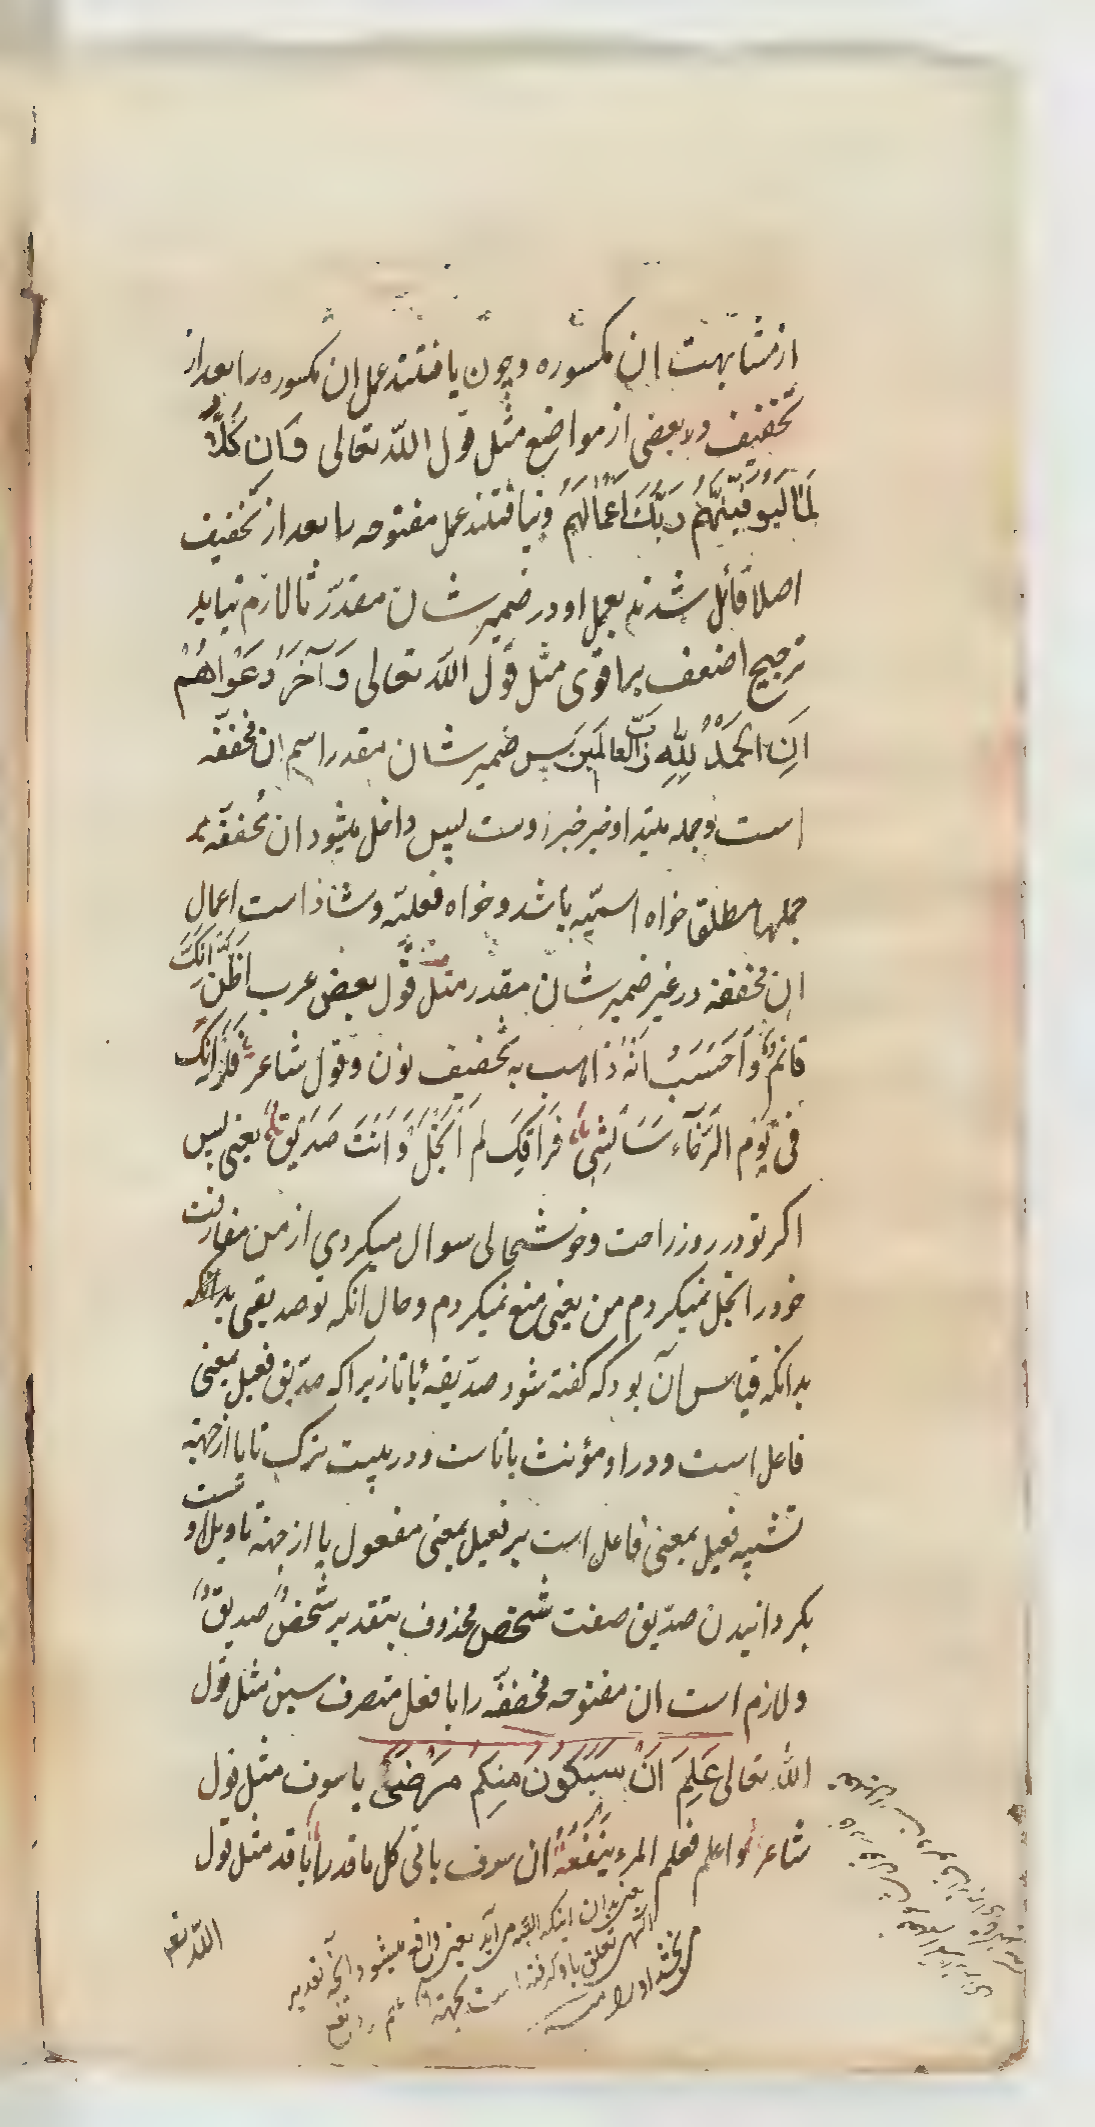 از مشابهت ان مکسوره و چون یافتند عمل ان مکسوره را بعد از
تخفیف در بعضی از مواضع مثل قول اللّه تعالی وَاِن کُلّاً
لَمّا لَیُوَفِّیَنَّهُم رَبُّكَ اَعْمالَهُم و نیافتند عمل مفتوحه را بعد از تخفیف
اصلا قائل شدند بعمل او در ضمیر شان مقدّر تا لازم نیاید
ترجیح اضعف بر اقوی مثل قول اللّه تعالی وَآخِرُ دَعْواهُمْ
اَنِ الحَمْدُ لِلّهِ رَبِّ العالَمینَ پس ضمیر شان مقدر اسم ان مخففّه
است و جمله مبتدا و خبر خبر اوست پس داخل میشود ان مخففّه بر
جملها مطلقا خواه اسمیّه باشد و خواه فعلیّه و شاذ است اعمال
ان مخففه در غیر ضمیر شان مقدر مثل قول بعض عرب اَظُنُّ اَنْكَ
قائمٌ وَاَحْسَبُ اَنْهُ ذاهب به تخفیف نون و قول شاعر فَلَوْ اَنْكِ
فی یَوْمِ الرَّخآءِ سَاَلْتِنی فِراقَكِ لَم اَبْخَلْ وَاَنْتَ صَدیقٌ یعنی پس
اگر تو در روز راحت و خوشحالی سوال میکردی از من مفارقت
خود را بخل نمیکردم من یعنی منع نمیکردم و حال انکه تو صدیقی بدانکه
بدانکه قیاس آن بود که گفته شود صدّیقه باتا زیرا که صدّیق فعیل بمعنی
فاعل است و در او مؤنث باتا است و در بیت ترک تا یا از جهة
تشبیه فعیل بمعنی فاعل است بر فعیل بمعنی مفعول یا از جهة تاویل اوست
بگردانیدن صدّیق صفت شخص محذوف بتقدیر شخصٌ صدیقٌ
و لازم است ان مفتوحه مخففّه را با فعل متصرف سین مثل قول
اللّه تعالی عَلِمَ اَنْ سَیَکُونُ مِنْکُم مَرْضی یا سوف مثل قول
شاعر واعلم فعلم المرء یَنْفَعُهُ ان سوف یاتی کل ما قدرا یا قد مثل قول
اللّه تعـ
یعنی بدان اینکه البته می آید یعنی واقع میشود آنچه تقدیر
الهی تعلق باو گرفته است بجهة